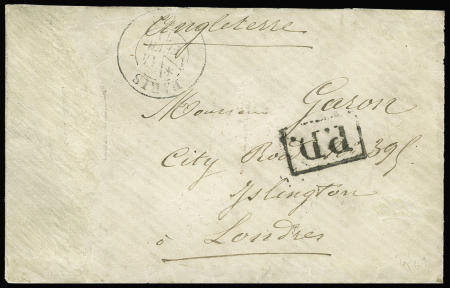 Angleterre
PARIS
Monsieur Garon
P.D.
City Road 395
Islington
à Londres